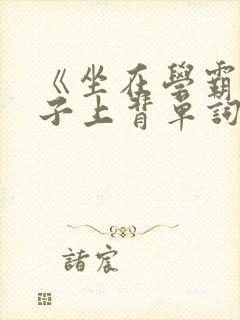 《坐在學霸
子上背單詞
諸宸